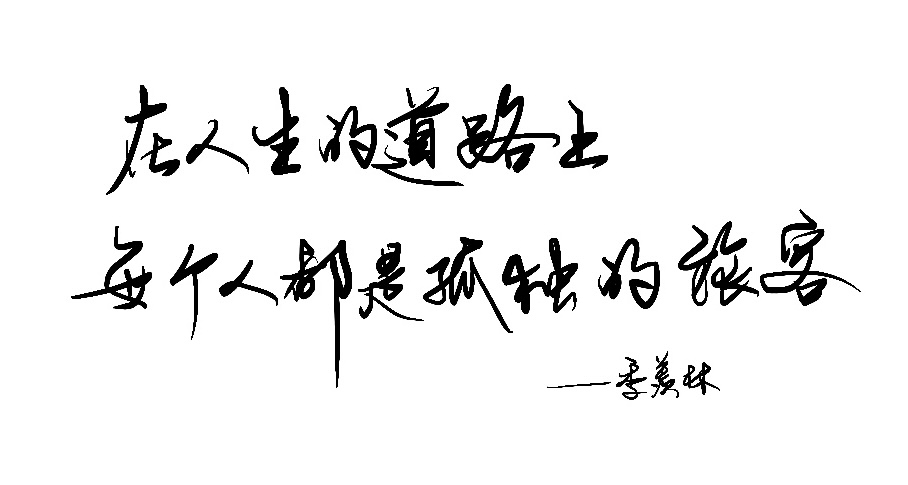 在人生的道路上
每个人都是孤独的旅客
——季羡林